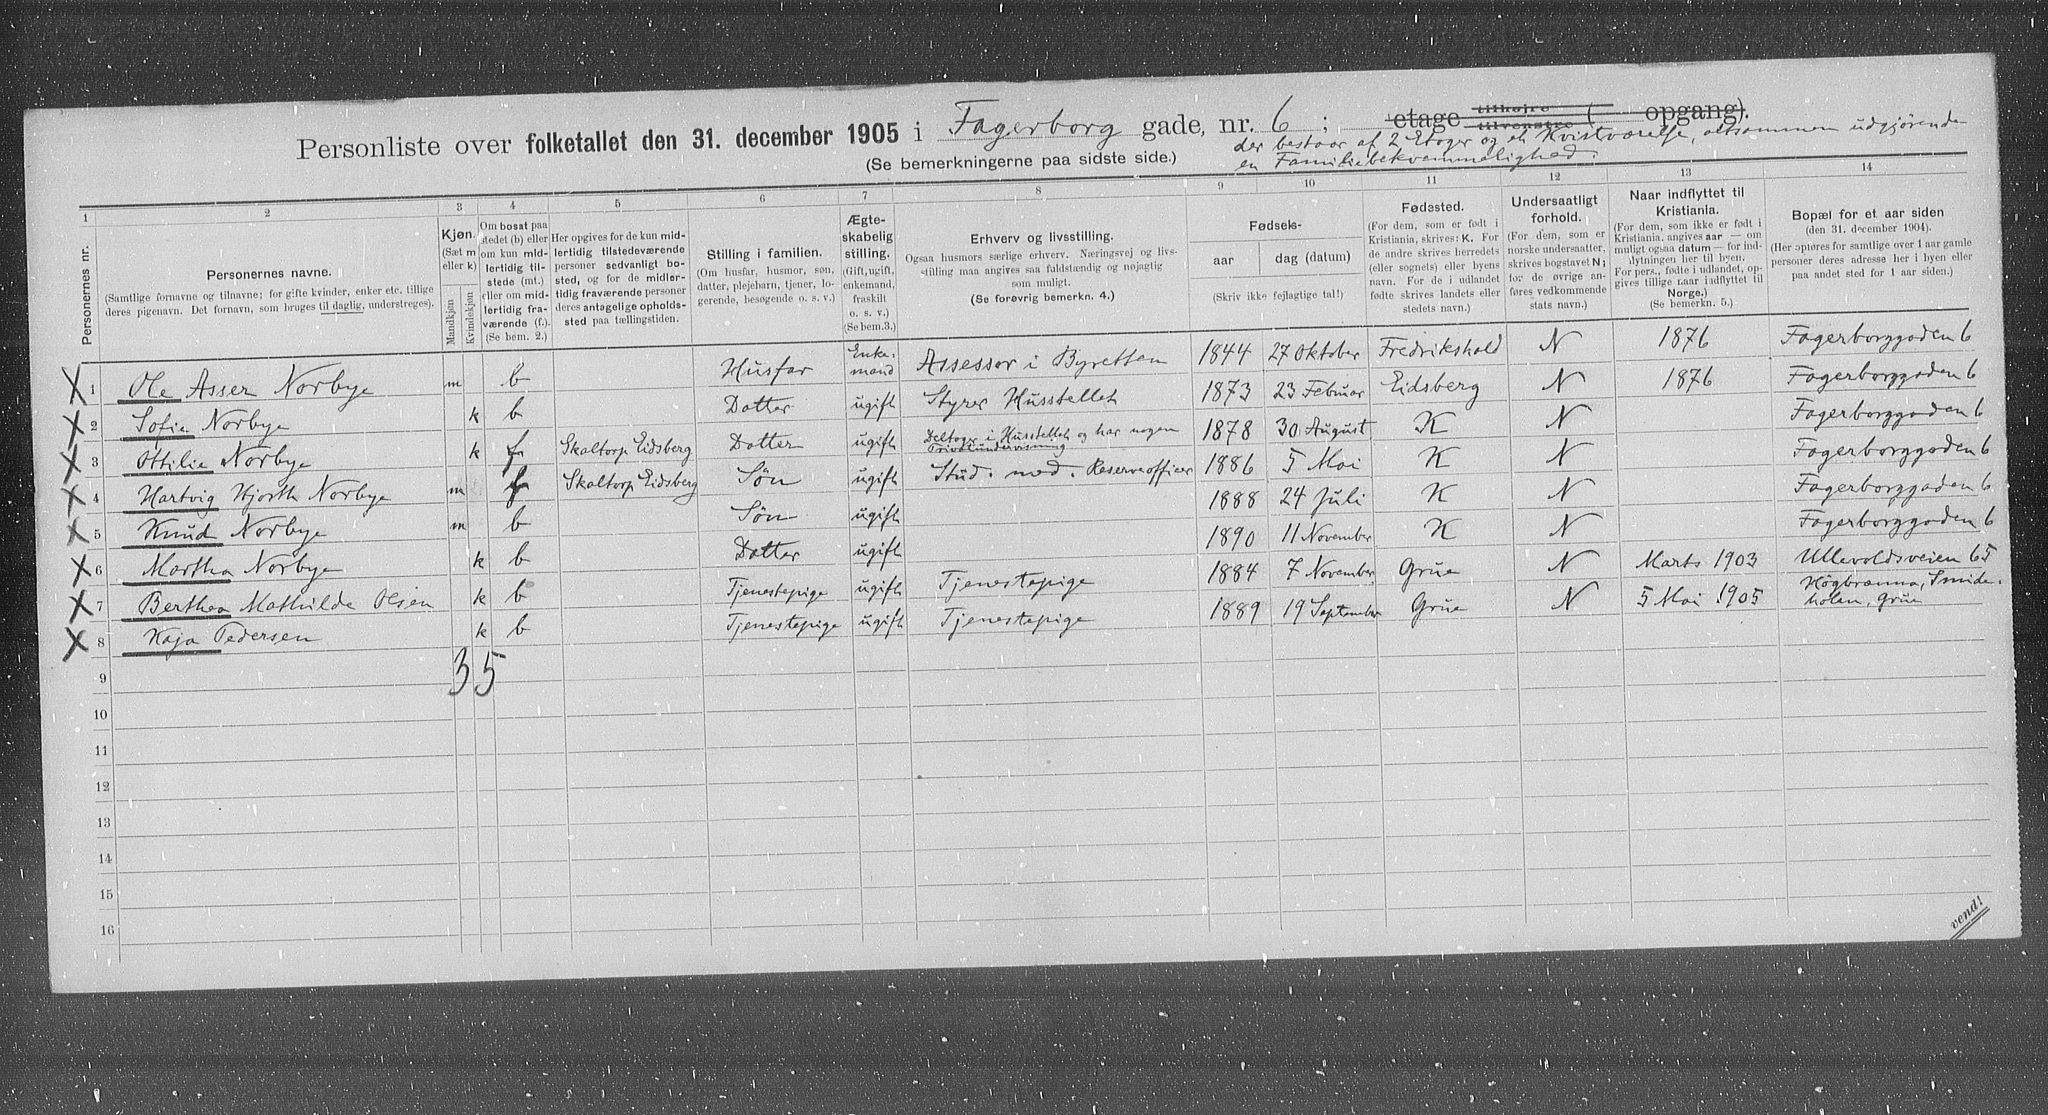 Personliste over folketallet den 31. december 1905 i Fagerborg gade, nr. 6 ; etage tilhøjre tilvenstre ( opgang).
(Se bemerkningerne paa sidste side.)
der bestaar af 2 Etager og et Kvistværelse, altsammen udgjørende
en Familiebekvemmelighed.
1 2 3 4 5 6 7 8 9 10 11 12 13 14
Personernes nr.
Personernes navne.
(Samtlige fornavne og tilnavne; for gifte kvinder, enker etc. tillige
deres pigenavn. Det fornavn, som bruges til daglig, understreges).
Kjøn.
(Sæt m
eller k)
Mandkjøn.
Kvindekjøn.
Om bosat paa
stedet (b) eller
om kun mid-
lertidig til-
stede (mt.)
eller om mid-
lertidig fra-
værende (f.)
(Se bem. 2.)
Her opgives for de kun mid-
lertidig tilstedeværende
personer sedvanlig bo-
sted, og for de midler-
tidig fraværende personer
deres antagelige opholds-
sted paa tællingstiden.
Stilling i familien.
(Om husfar, husmor, søn,
datter, plejebarn, tjener, lo-
gerende, besøgende o. s. v.)
Ægte-
skabelig
stilling.
(Gift, ugift,
enkemand,
fraskilt
o. s. v.)
(Se bem.3.)
Erhverv og livsstilling.
Ogsaa husmors særlige erhverv. Næringsvej og livs-
stilling maa angives saa fuldstændig og nøjagtig
som muligt.
(Se forøvrig bemerkn. 4.)
Fødsels-
aar dag (datum)
(Skriv ikke fejlagtige tal!)
Fødested.
(For dem, som er født i
Kristiania, skrives: K. For
de andre skrives herredets
(eller sognets) eller byens
navn. For de i udlandet
fødte skrives landets eller
stedets navn.)
Undersaatligt
forhold.
(For dem, som er
norske undersaatter,
skrives bogstavet N;
for de øvrige an-
føres vedkommende
stats navn.)
Naar indflyttet til
Kristiania.
(For dem, som ikke er født i
Kristiania, angives aar — om
muligt ogsaa datum — for ind-
flytningen her til byen.
For pers., fødte i udlandet, op-
gives tillige naar indflyttet til
Norge.)
(Se bemerkn. 5.)
Bopæl for et aar siden
(den 31. december 1904).
(Her opføres for samtlige over 1 aar gamle
personer deres adresse her i byen eller
paa andet sted for 1 aar siden.)
X 1 Ole Asser Norbye m b Husfar Enke-mand Assessor i Byretten 1844 27 Oktober Fredrikshald N 1876 Fagerborggaden 6
X 2 Sofie Norbye k b Datter ugift Styrer Husstellet 1873 23 Februar Eidsberg N 1876 Fagerborggaden 6
X 3 Ottilie Norbye k f Skaltorp Eidsberg Datter ugift Deltager i Husstellet og har nogen Privatundervisning 1878 30 August K N Fagerborggaden 6
X 4 Hartvig Hjorth Norbye m f Skaltorp Eidsberg Søn ugift Stud. med. Reserveofficer 1886 5 Mai K N Fagerborggaden 6
X 5 Knud Norbye m b Søn ugift 1888 24 Juli K N Fagerborggaden 6
X 6 Martha Norbye k b Datter ugift 1890 11 November K N Fagerborggaden 6
X 7 Berthea Mathilde Olsen k b Tjenestepige ugift Tjenestepige 1884 7 November Grue N Marts 1903 Ullevoldsveien 65
X 8 Kaja Pedersen k b Tjenestepige ugift Tjenestepige 1889 19 September Grue N 5 Mai 1905 Høgbrænna, Smide-holen, Grue
3 5
9
10
11
12
13
14
15
16
vend!